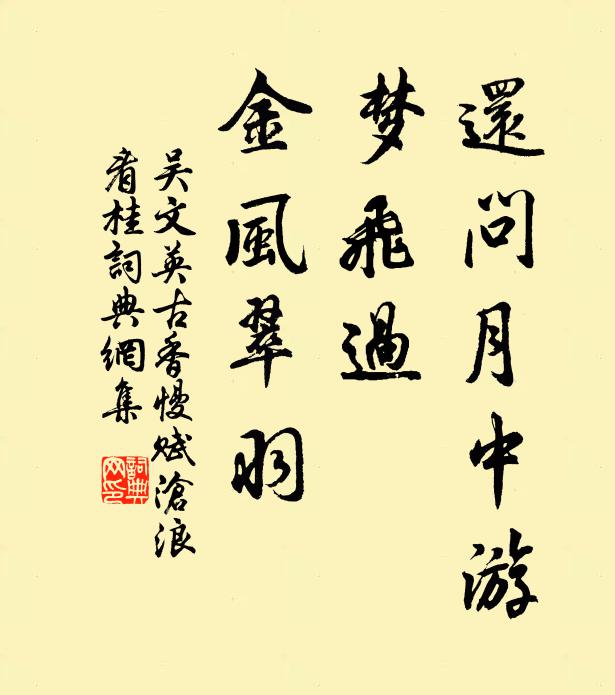 還问月中游
梦飛過
金風翠羽
吴文英古香慢赋滄浪
看桂詞典網集
詞典
网印